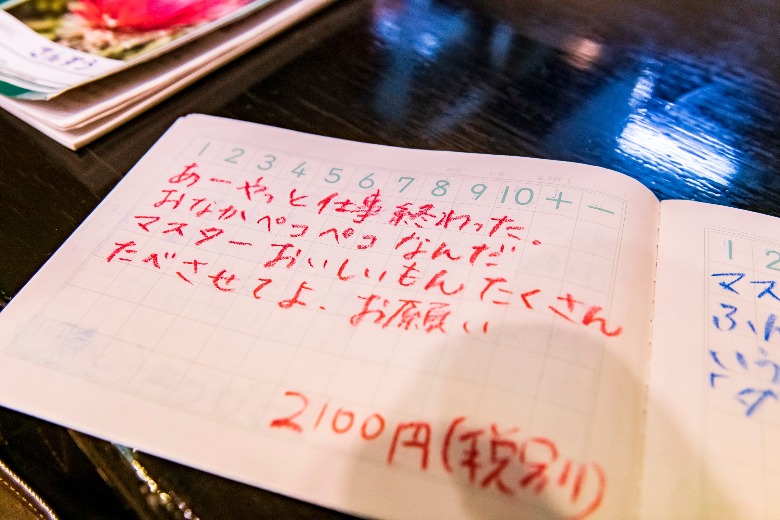 1 2 3 4 5 6 7 8 9 10 + −
あーやっと仕事終わった。
おなかペコペコなんだ
マスターおいしいもんたくさん
たべさせてよ、お願い
2100円(税別)
1 2
マス
ふ
いう
「ダ